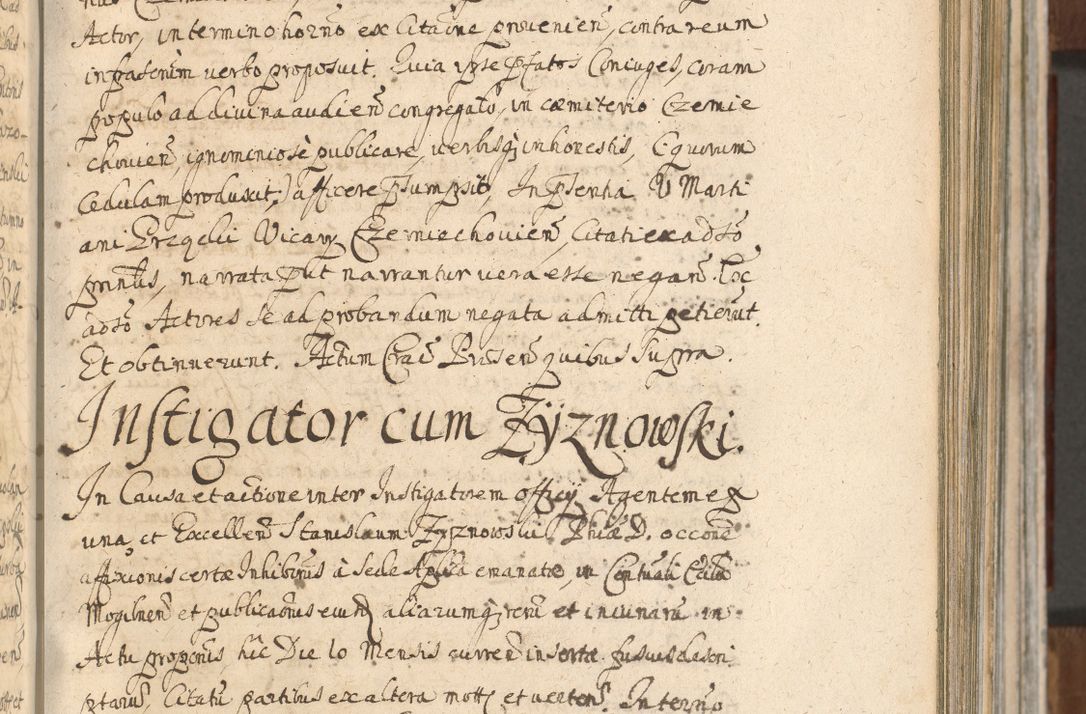 Actor, in termino horno ex Citatne provenien, contra reum
in pntenim verbo proposuit. Quia ipse pfatos Coniuges, coram
populo ad divina audien congregato, in cœmiterio Czernie
chovien, ignominiose publicare, verbisq inhonestis, (quorum
Cedulam produxit) afficere psumpsit, In pntia V Marti
ani Vicary Czerniechovien, Citati ex adso
pntis, narrata put narrantur vera esse negan. Toc
adso Actores se ad probandum negata admitti petierut.
Et obtinuerunt. Actum Crac Pnsen quibus supra.
Instigator cum Zyznowski.
In Causa et actione inter Instigatorem officy Agentem ex
una, et Excellen Stanislaum Zyznowski Phiæ D. occone
affixionis certæ Inhibnis à Sede Aplica emanatæ, in Ecclia
Mogilnen et publicaonis eiusd aliarumq reru et iniuriaru in
Actu proponis hic Die 10 Mensis curren insertæ fusius descri
ptarus, Citatu partibus ex altera mots et verten. In termno